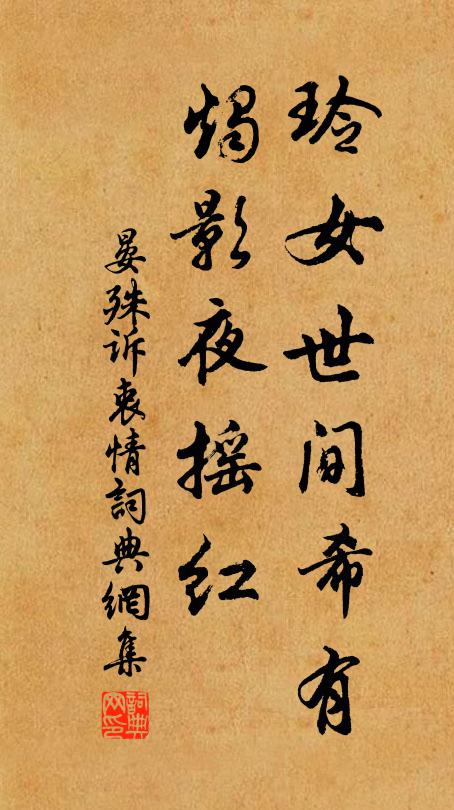 玲女世间希有
烛影夜摇红
晏殊诉衷情詞典網集
詞典網印